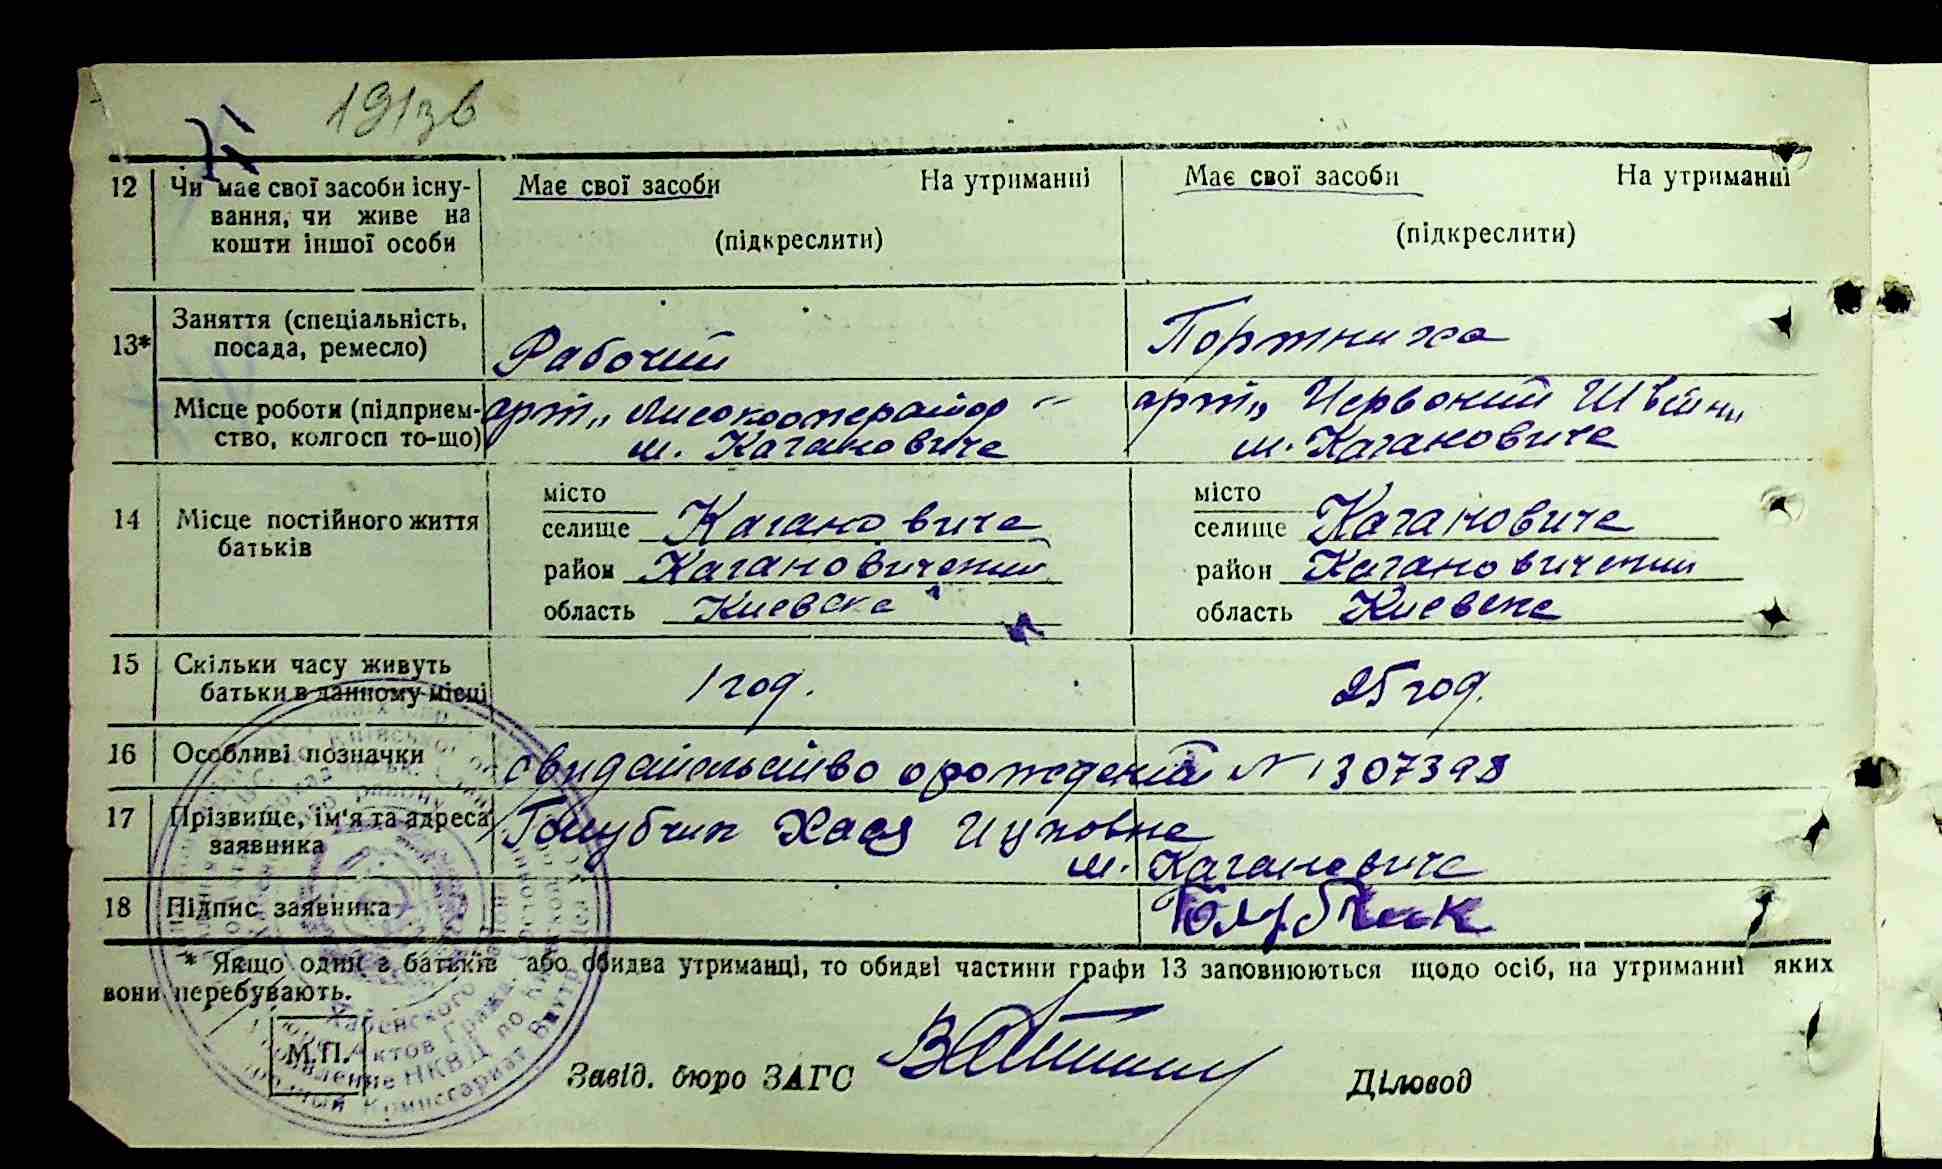 191зв
12 Чи має свої засоби існу-
вання, чи живе на
кошти іншої особи
Має свої засоби На утриманні
(підкреслити)
Має свої засоби На утриманні
(підкреслити)
13* Заняття (спеціальність,
посада, ремесло)
Рабочий
Портниха
Місце роботи (підприєм-
ство, колгосп то-що)
арт. „
м. Кагановиче
арт. „ Червоний Швейни
м. Кагановиче
14 Місце постійного життя
батьків
місто
селище Кагановиче
район Кагановичский
область Киевске
місто
селище Кагановиче
район Кагановичский
область Киевске
15 Скільки часу живуть
батьки в данному місці
1 год.
25 год.
16 Особливі позначки
свидетельство о рождении № 1307398
17 Прізвище, ім'я та адреса
заявника
Голубчик Хася Ицковна
м. Кагановиче
18 Підпис заявника
Голубчик
* Якщо один з батьків або обидва утриманці, то обидві частини графи 13 заповнюються щодо осіб, на утриманні яких
вони перебувають.
М.П.
Завід. бюро ЗАГС
Діловод